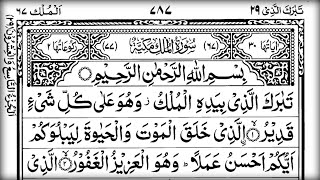 تبٰرك الذى ٢٩ ٧٨٧ الملك ٦٧
اٰیاتها ٣٠ (٦٧) سُوْرَةُ الْمُلْكِ مَكِّيَّةٌ (٧٧) رکوعاتها ٢
بِسْمِ اللّٰهِ الرَّحْمٰنِ الرَّحِيْمِ
تَبٰرَكَ الَّذِىْ بِيَدِهِ الْمُلْكُ ز وَهُوَ عَلٰى كُلِّ شَىْءٍ
قَدِيْرُ ۙ۝١ الَّذِىْ خَلَقَ الْمَوْتَ وَالْحَيٰوةَ لِيَبْلُوَكُمْ
اَيُّكُمْ اَحْسَنُ عَمَلًا ؕ وَهُوَ الْعَزِيْزُ الْغَفُوْرُ ۙ۝٢ الَّذِىْ